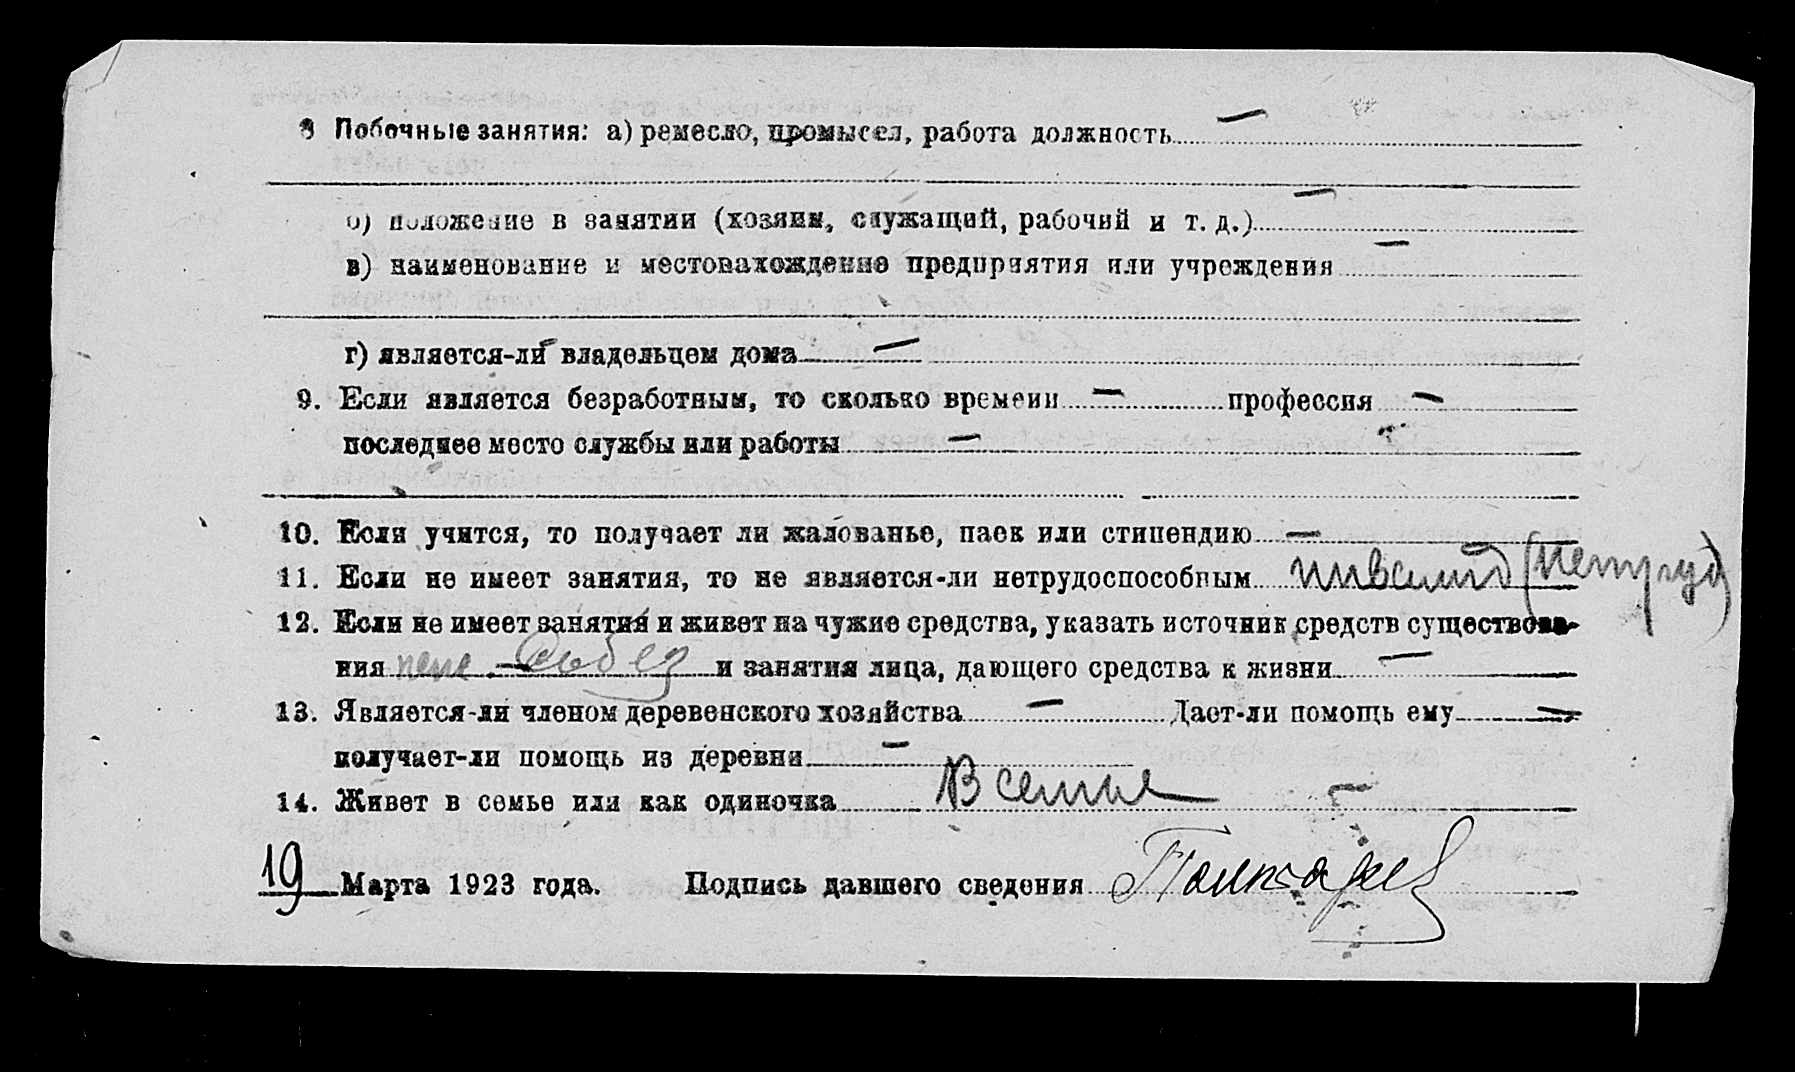 8 Побочные занятия: а) ремесло, промысел, работа должность —
б) положение в занятии (хозяин, служащий, рабочий и т. д.) —
в) наименование и местонахождение предприятия или учреждения —
г) является-ли владельцем дома —
9. Если является безработным, то сколько времени — профессия —
последнее место службы или работы —
10. Если учится, то получает ли жалованье, паек или стипендию —
11. Если не имеет занятия, то не является-ли нетрудоспособным инвалид (нетруд)
12. Если не имеет занятия и живет на чужие средства, указать источник средств существова-
ния пенс. Собез и занятия лица, дающего средства к жизни —
13. Является-ли членом деревенского хозяйства — Дает-ли помощь ему —
получает-ли помощь из деревни —
14. Живет в семье или как одиночка В семье
19 Марта 1923 года. Подпись давшего сведения